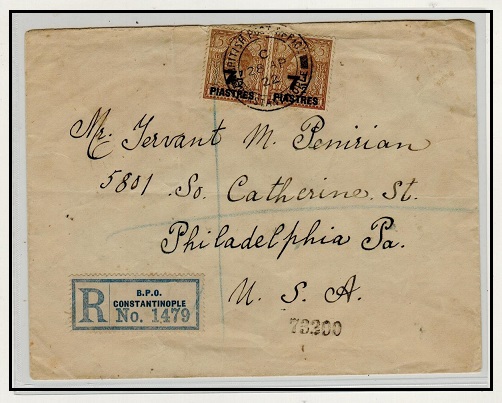 BRITISH
C
22
7½ 7½
PIASTRES PIASTRES
Mr. Jervant M. Penirian
5801 So. Catherine St.
Philadelphia Pa.
U. S. A.
R
B.P.O.
CONSTANTINOPLE
No. 1479
78300